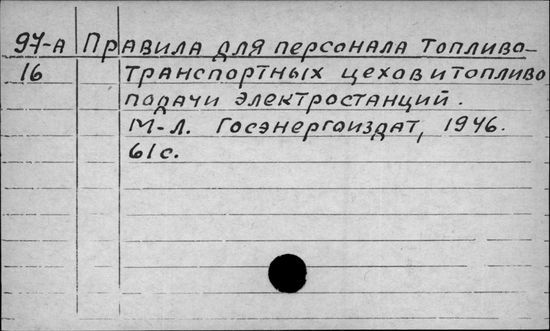 97-А Правила для персонала топливо-
16 транспортных цехов и топливо
подачи электростанций.
М-Л. Госэнергоиздат, 1946.
61с.